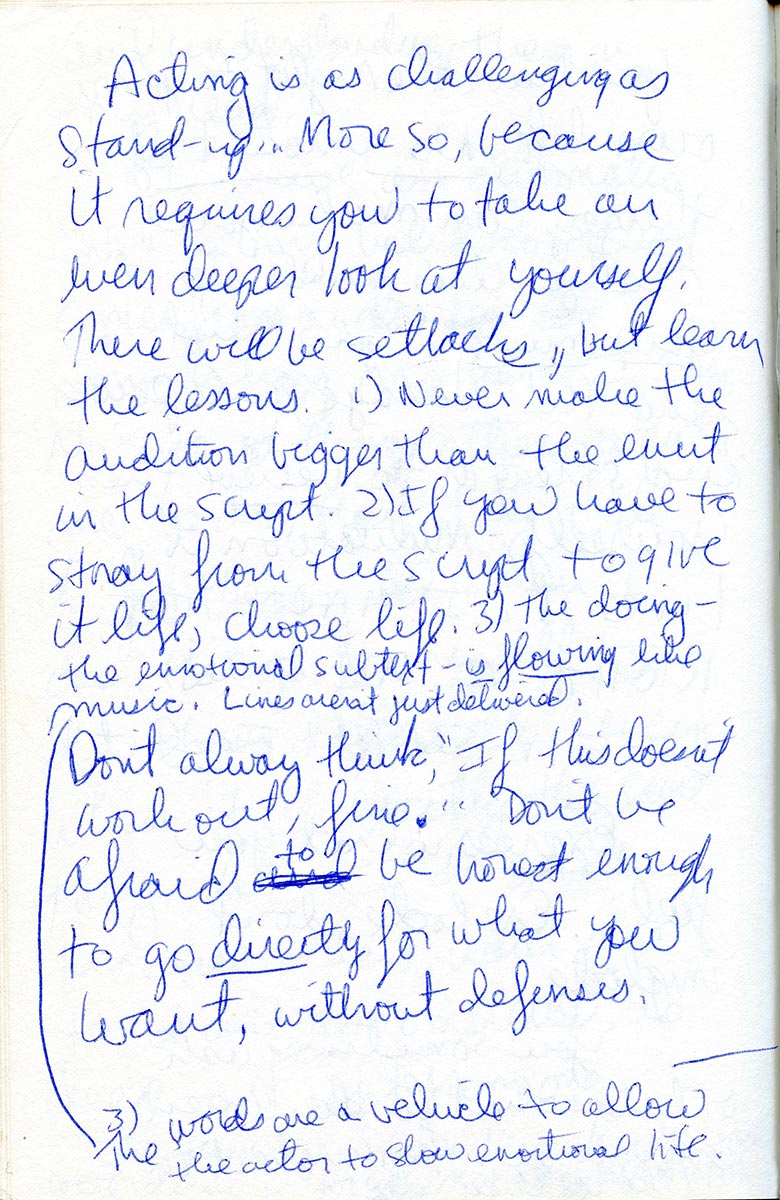 Acting is as challenging as
Stand-up... More so, because
it requires you to take an
even deeper look at yourself.
There will be setbacks, but learn
the lessons. 1) Never make the
audition bigger than the event
in the script. 2) If you have to
stray from the script to give
it life, choose life. 3) The doing -
the emotional subtext - is flowing like
music. Lines arent just delivered.
Don't alway think, "If this doesn't
work out, fine." Don't be
afraid to be honest enough
to go directly for what you
want, without defenses.
3) words are a vehicle to allow
The the actor to show emotional life.